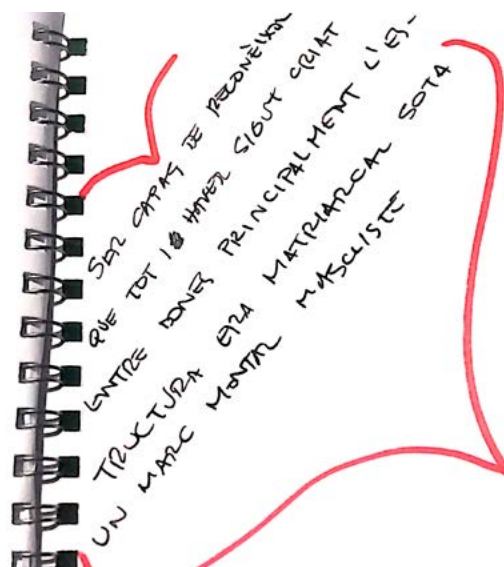 SER CAPAÇ DE RECONÈIXER
QUE TOT I HAVER SIGUT CRIAT
ENTRE DONES PRINCIPALMENT L'ES-
TRUCTURA ERA MATRIARCAL SOTA
UN MARC MONTAL MASCLISTE